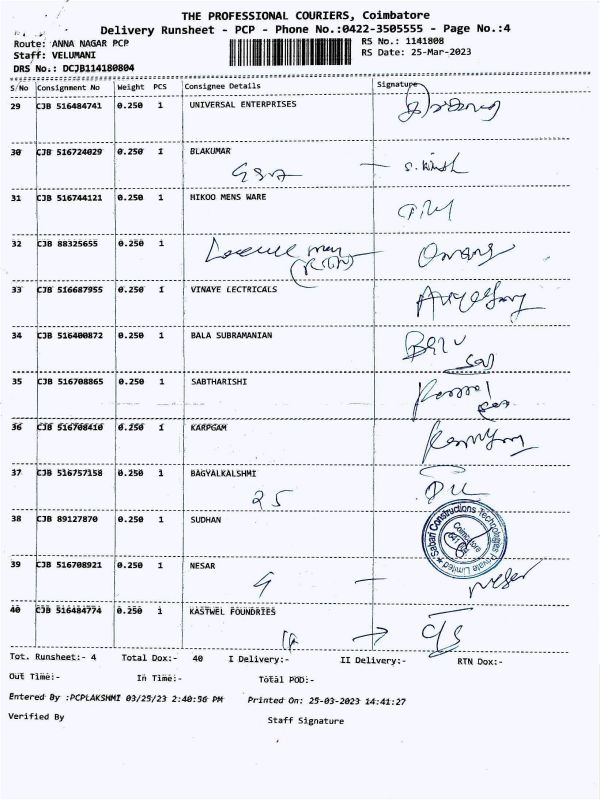 THE PROFESSIONAL COURIERS, Coimbatore
Delivery Runsheet - PCP - Phone No.:0422-3505555 - Page No.:4
Route: ANNA NAGAR PCP
RS No.: 1141808
Staff: VELUMANI
RS Date: 25-Mar-2023
DRS No.: DCJB114180804
S/No Consignment No Weight PCS Consignee Details Signature
29 CJB 516484741 0.250 1 UNIVERSAL ENTERPRISES
30 CJB 516724029 0.250 1 BLAKUMAR
31 CJB 516744121 0.250 1 HIKOO MENS WARE
32 CJB 88325655 0.250 1
33 CJB 516687955 0.250 1 VINAYE LECTRICALS
34 CJB 516400872 0.250 1 BALA SUBRAMANIAN
35 CJB 516708865 0.250 1 SABTHARISHI
36 CJB 516708410 0.250 1 KARPGAM
37 CJB 516757158 0.250 1 BAGYALKALSHMI
25
38 CJB 89127870 0.250 1 SUDHAN
Sabari Constructions Technologies Private Limited
Coimbatore
39 CJB 516708921 0.250 1 NESAR
40 CJB 516484774 0.250 1 KASTWEL FOUNDRIES
Tot. Runsheet:- 4 Total Dox:- 40 I Delivery:- II Delivery:- RTN Dox:-
Out Time:- In Time:- Total POD:-
Entered By :PCPLAKSHMI 03/25/23 2:40:56 PM Printed On: 25-03-2023 14:41:27
Verified By Staff Signature